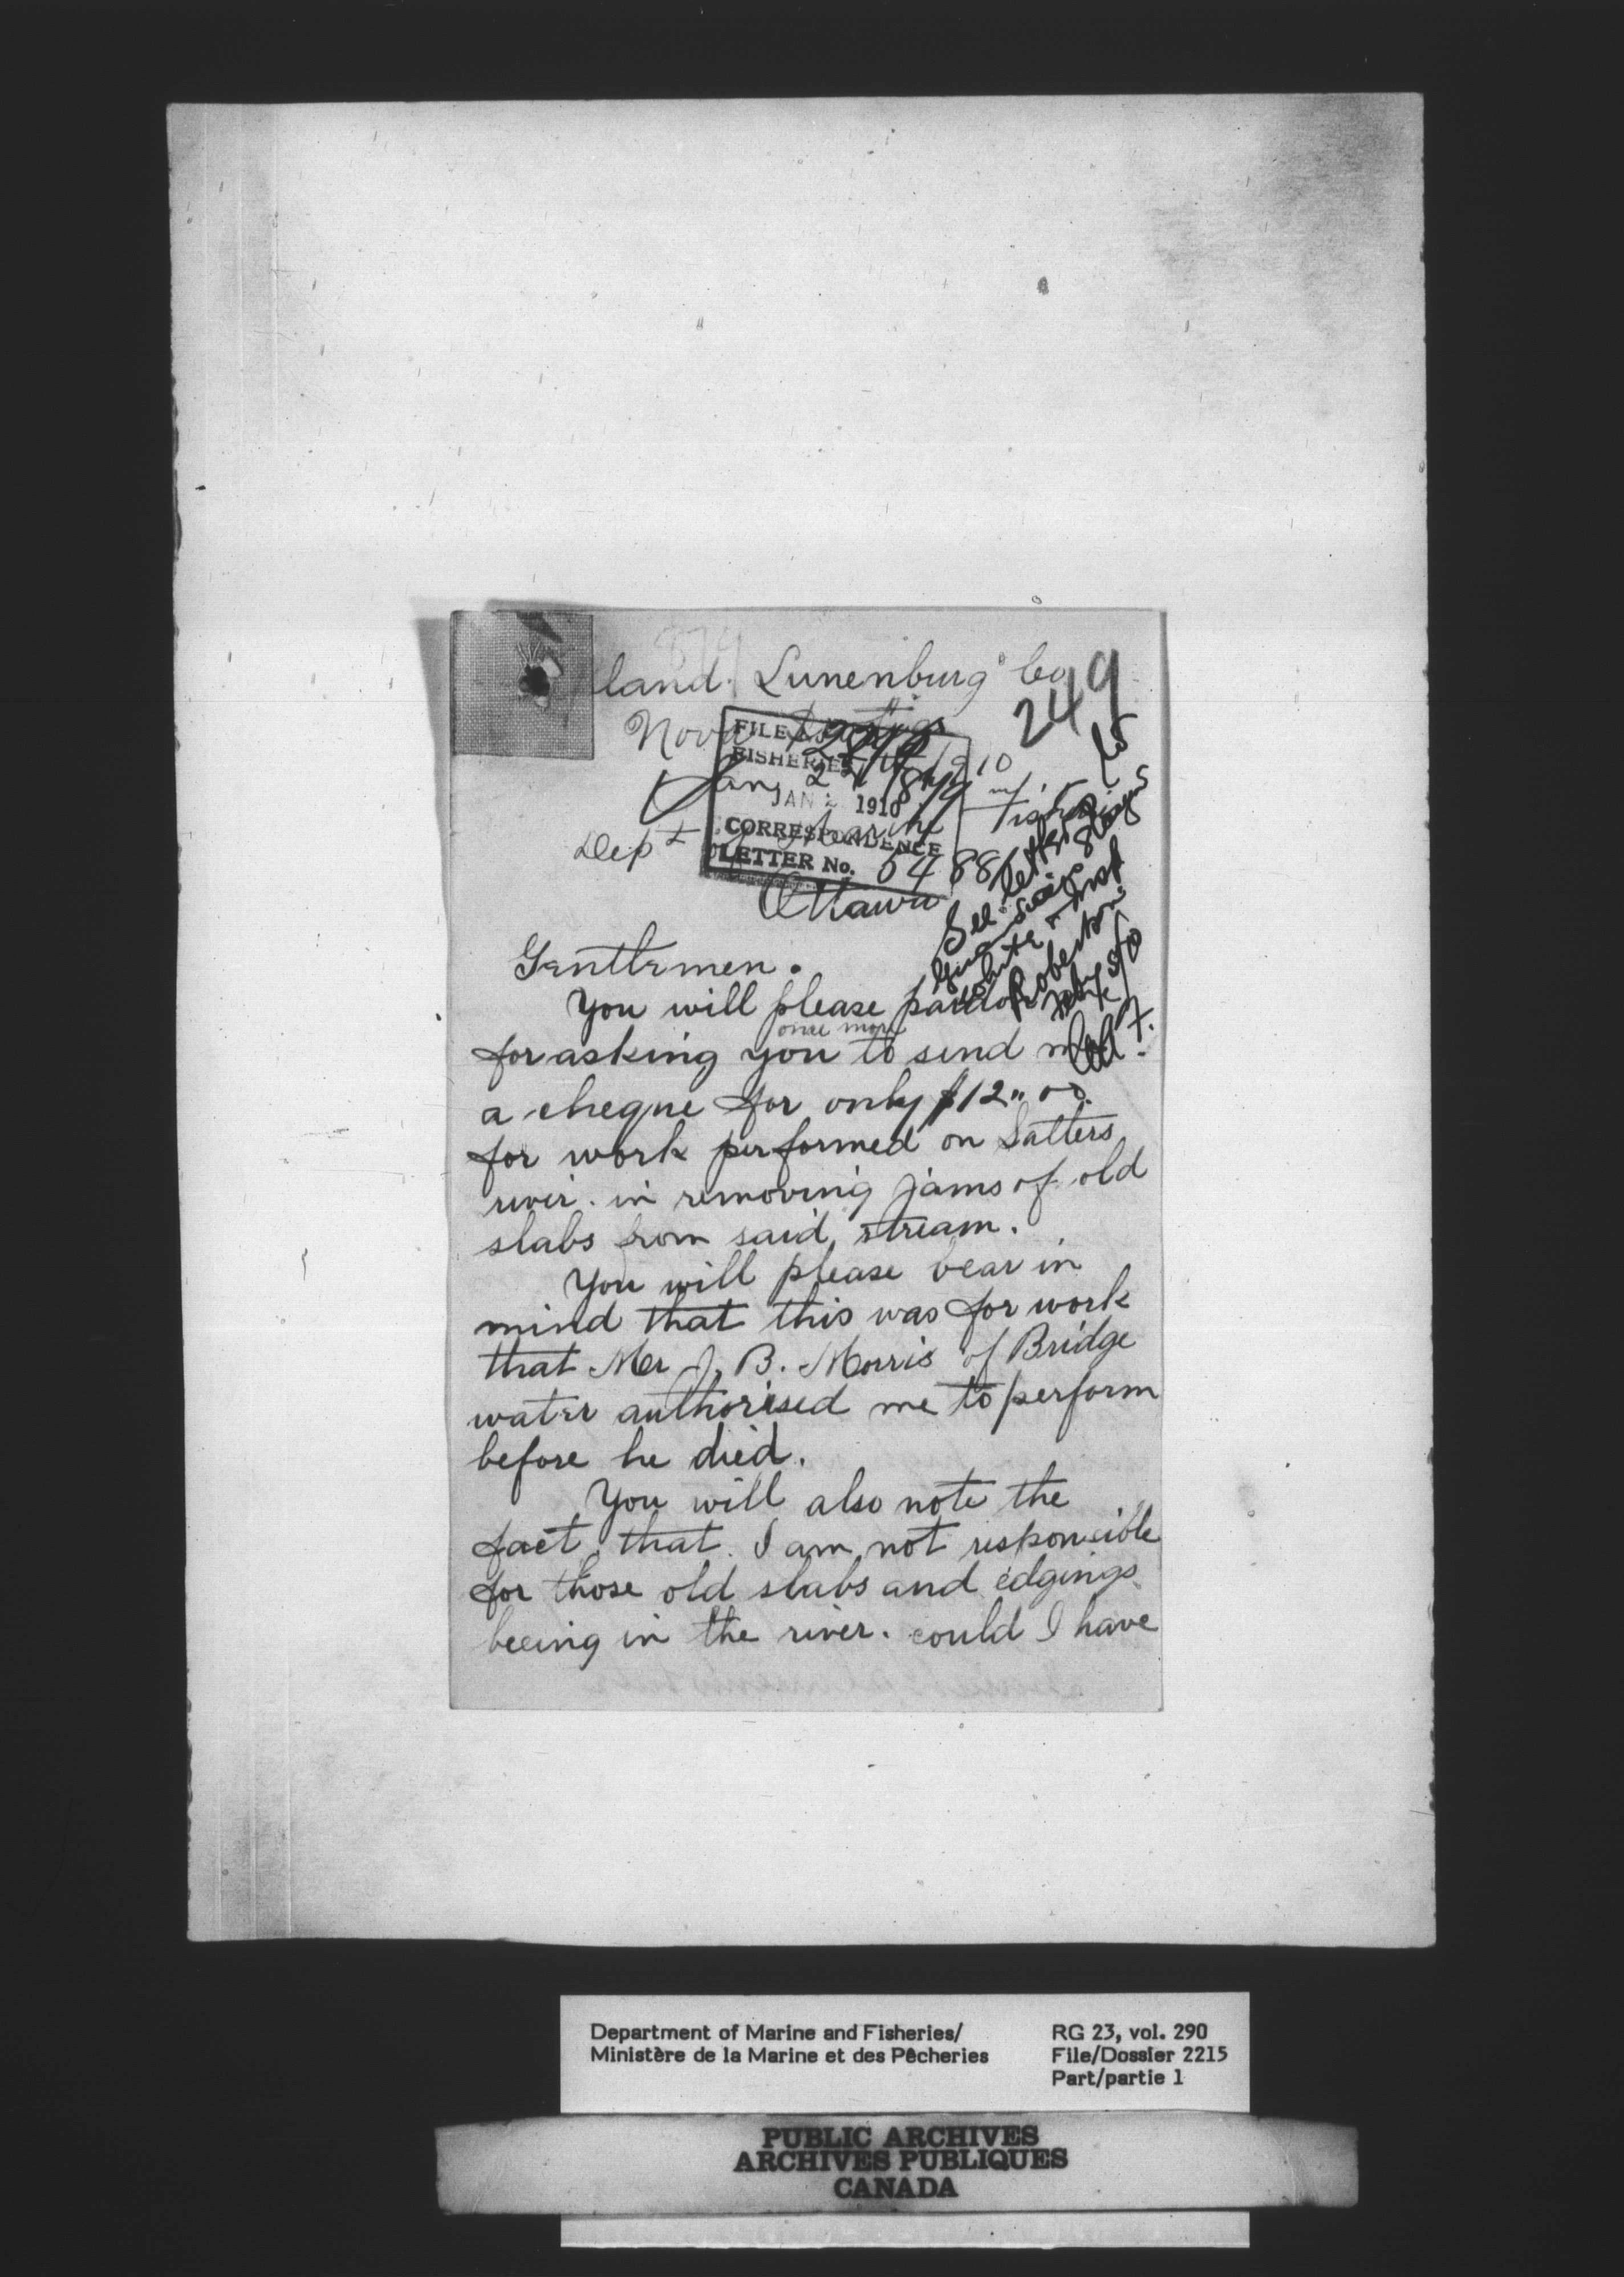 land. Lunenburg Co
249
Nova Scotia
FILE No.
FISHERIES
Jany 1910
JAN 1910
Dept of Marine
CORRESPONDENCE
LETTER No. 5488
Ottawa
See letter
white & Insp
Robertson
Gentlemen.
You will please pardon
once more
for asking you to send me
a cheque for only $12.00.
for work performed on Salters
river. in removing jams of old
slabs from said stream.
You will please bear in
mind that this was for work
that Mr J. B. Morris of Bridge
water authorised me to perform
before he died.
You will also note the
fact that. I am not responsible
for those old slabs and edgings
beeing in the river. could I have
Department of Marine and Fisheries/
Ministère de la Marine et des Pêcheries
RG 23, vol. 290
File/Dossier 2215
Part/partie 1
PUBLIC ARCHIVES
ARCHIVES PUBLIQUES
CANADA